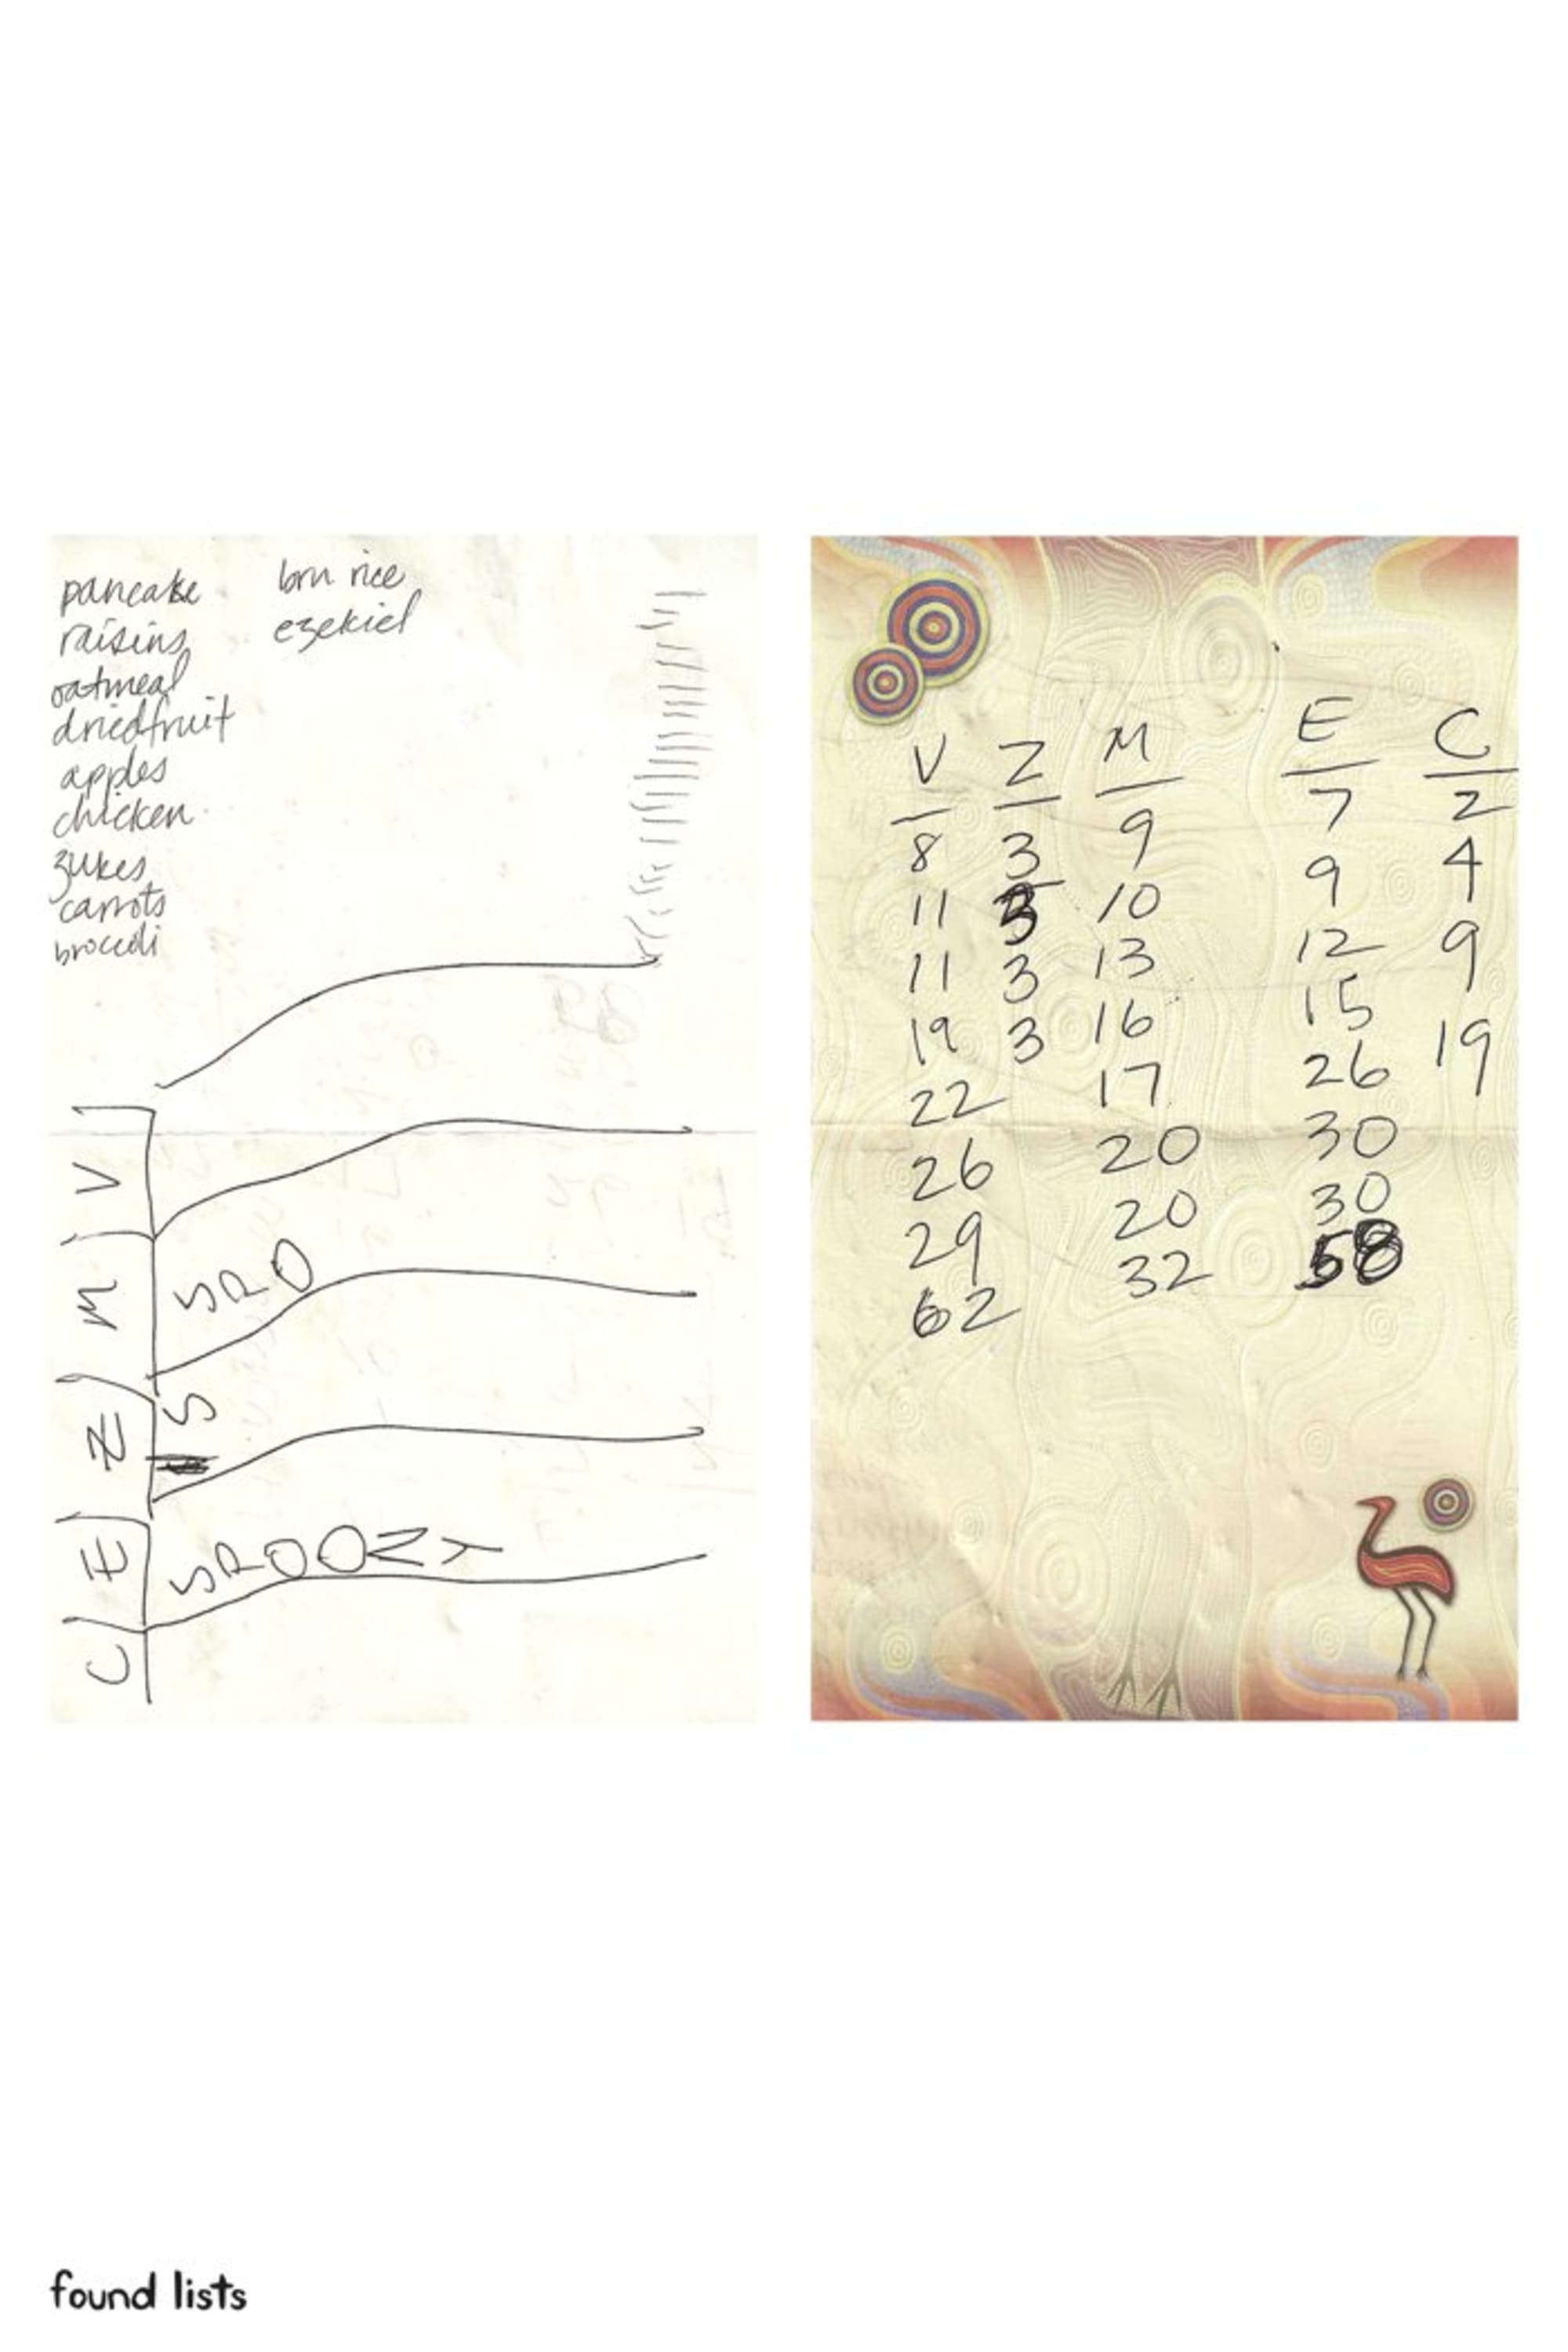 pancake
raisins
oatmeal
driedfruit
apples
chicken
zukes
carrots
broccoli
brn rice
ezekiel
V
M SPO
Z S
E SPOONY
C
V Z M E C
8 3 9 7 2
11 3 10 9 4
11 3 13 12 9
19 3 16 15 19
22 17 26
26 20 30
29 20 30
62 32 58
found lists